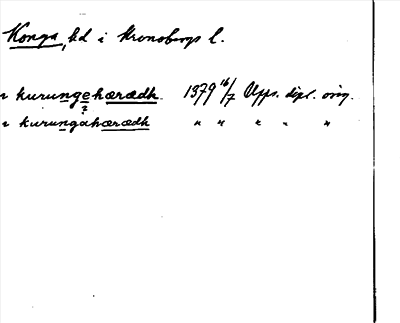 Konga, hd i Kronobergs l.
i kurungehærædh 1379 16/7 Upps. dipl. orig.
?
i kurungahærædh " " " " "